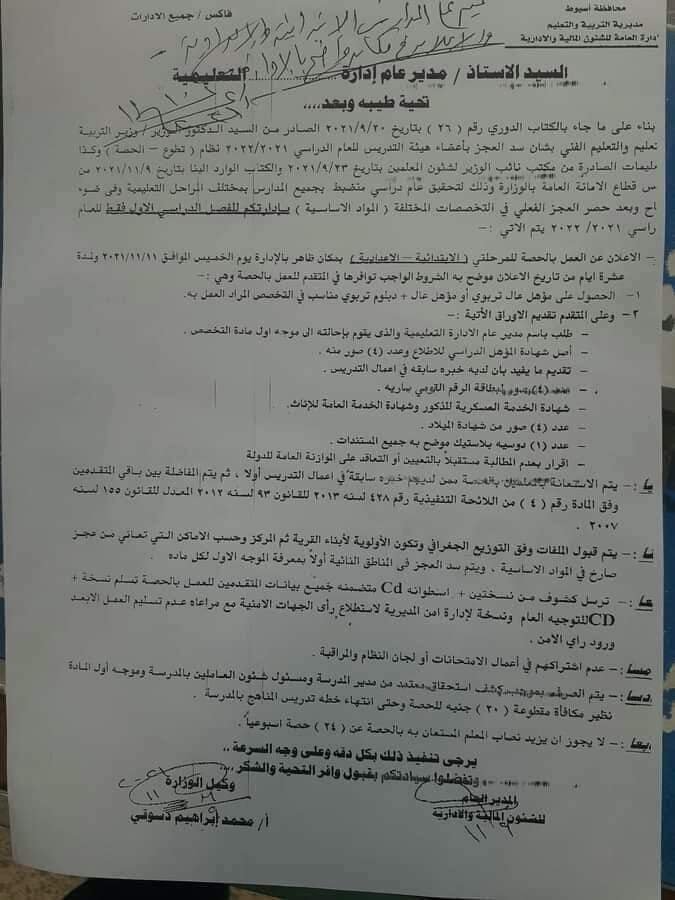 محافظة أسيوط
مديرية التربية والتعليم
إدارة العامة للشئون المالية والادارية
فاكس / جميع الادارات
السيد الاستاذ / مدير عام إدارة التعليمية
تحية طيبه وبعد ....
بناء على ما جاء بالكتاب الدوري رقم ( ٢٦ ) بتاريخ ٢٠٢١/٩/٢٠ الصادر من السيد الدكتور الوزير / وزير التربية
تعليم والتعليم الفني بشان سد العجز بأعضاء هيئة التدريس للعام الدراسي ٢٠٢٢/٢٠٢١ نظام ( تطوع – الحصة ) وكذا
عليمات الصادرة من مكتب نائب الوزير لشئون المعلمين بتاريخ ٢٠٢١/٩/٢٣ والكتاب الوارد الينا بتاريخ ٢٠٢١/١١/٩ من
س قطاع الامانة العامة بالوزارة وذلك لتحقيق عام دراسي منضبط بجميع المدارس بمختلف المراحل التعليمية وفى ضوء
اح وبعد حصر العجز الفعلي في التخصصات المختلفة ( المواد الاساسية ) بإدارتكم للفصل الدراسي الاول فقط للعام
راسي ٢٠٢١/ ٢٠٢٢ يتم الاتي :-
– الاعلان عن العمل بالحصة للمرحلتي ( الابتدائية – الاعدادية ) بمكان ظاهر بالإدارة يوم الخميس الموافق ٢٠٢١/١١/١١ ولمدة
عشرة ايام من تاريخ الاعلان موضح به الشروط الواجب توافرها في المتقدم للعمل بالحصة وهي :-
١- الحصول على مؤهل عال تربوي أو مؤهل عال + دبلوم تربوي مناسب في التخصص المراد العمل به.
٢- وعلى المتقدم تقديم الاوراق الأتية :-
– طلب باسم مدير عام الادارة التعليمية والذى يقوم بإحالته الى موجه اول مادة التخصص .
– أصل شهادة المؤهل الدراسي للاطلاع وعدد (٤) صور منه .
– تقديم ما يفيد بان لديه خبره سابقه في اعمال التدريس .
– عدد (٤) صور لبطاقة الرقم القومي ساريه .
– شهادة الخدمة العسكرية للذكور وشهادة الخدمة العامة للإناث.
– عدد (٤) صور من شهادة الميلاد .
– عدد (١) دوسيه بلاستيك موضح به جميع المستندات .
– اقرار بعدم المطالبة مستقبلاً بالتعيين أو التعاقد على الموازنة العامة للدولة
يا :- يتم الاستعانة بالمعلمين بالحصة ممن لديهم خبره سابقة في اعمال التدريس أولا ، ثم يتم المفاضلة بين باقي المتقدمين
وفق المادة رقم ( ٤ ) من اللائحة التنفيذية رقم ٤٢٨ لسنه ٢٠١٣ للقانون ٩٣ لسنه ٢٠١٢ المعدل للقانون ١٥٥ لسنه
٢٠٠٧ .
ثا :- يتم قبول الملفات وفق التوزيع الجغرافي وتكون الأولوية لأبناء القرية ثم المركز وحسب الاماكن التي تعاني من عجز
صارخ في المواد الاساسية ، ويتم سد العجز فى المناطق النائية أولاً بمعرفة الموجه الاول لكل ماده .
عا :- ترسل كشوف من نسختين + اسطوانه Cd متضمنه جميع بيانات المتقدمين للعمل بالحصة تسلم نسخة +
CD للتوجيه العام ونسخة لإدارة امن المديرية لاستطلاع رأى الجهات الامنية مع مراعاه عدم تسليم العمل الابعد
ورود راي الامن .
مسا :- عدم اشتراكهم في أعمال الامتحانات أو لجان النظام والمراقبة .
دسا :- يتم الصرف بموجب كشف استحقاق معتمد من مدير المدرسة ومسئول شئون العاملين بالمدرسة وموجه أول المادة
نظير مكافأة مقطوعة ( ٢٠ ) جنيه للحصة وحتى انتهاء خطه تدريس المناهج بالمدرسة .
بعا :- لا يجوز ان يزيد نصاب المعلم المستعان به بالحصة عن ( ٢٤ ) حصة اسبوعيا .
يرجى تنفيذ ذلك بكل دقه وعلى وجه السرعة ..
وتفضلوا سيادتكم بقبول وافر التحية والشكر ....
المدير العام
للشئون المالية والادارية
وكيل الوزارة
أ/ محمد إبراهيم دسوقي